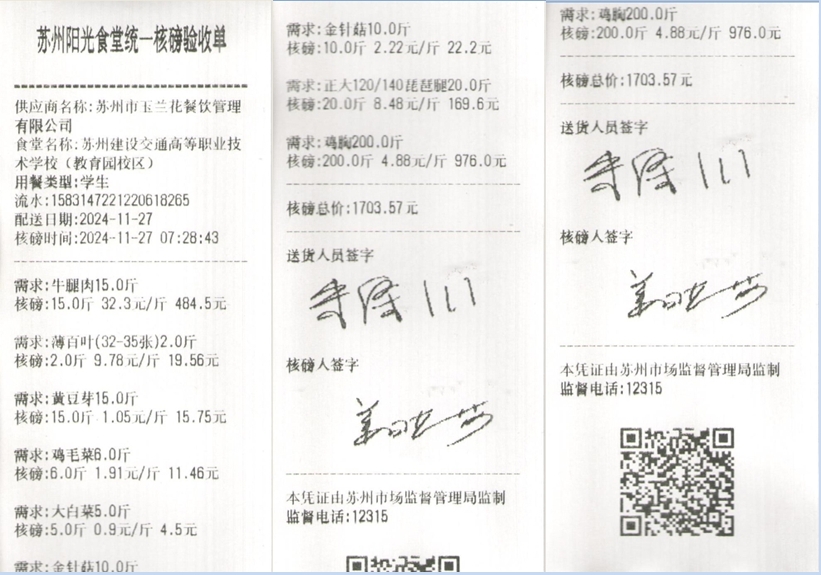 苏州阳光食堂统一核磅验收单
供应商名称:苏州市玉兰花餐饮管理
有限公司
食堂名称:苏州建设交通高等职业技
术学校（教育园校区）
用餐类型:学生
流水:1583147221220618265
配送日期:2024-11-27
核磅时间:2024-11-27 07:28:43
需求:牛腿肉15.0斤
核磅:15.0斤 32.3元/斤 484.5元
需求:薄百叶(32-35张)2.0斤
核磅:2.0斤 9.78元/斤 19.56元
需求:黄豆芽15.0斤
核磅:15.0斤 1.05元/斤 15.75元
需求:鸡毛菜6.0斤
核磅:6.0斤 1.91元/斤 11.46元
需求:大白菜5.0斤
核磅:5.0斤 0.9元/斤 4.5元
需求:金针菇10.0斤
需求:金针菇10.0斤
核磅:10.0斤 2.22元/斤 22.2元
需求:正大120/140琵琶腿20.0斤
核磅:20.0斤 8.48元/斤 169.6元
需求:鸡胸200.0斤
核磅:200.0斤 4.88元/斤 976.0元
核磅总价:1703.57元
送货人员签字
核磅人签字
本凭证由苏州市场监督管理局监制
监督电话:12315
需求:鸡胸200.0斤
核磅:200.0斤 4.88元/斤 976.0元
核磅总价:1703.57元
送货人员签字
核磅人签字
本凭证由苏州市场监督管理局监制
监督电话:12315